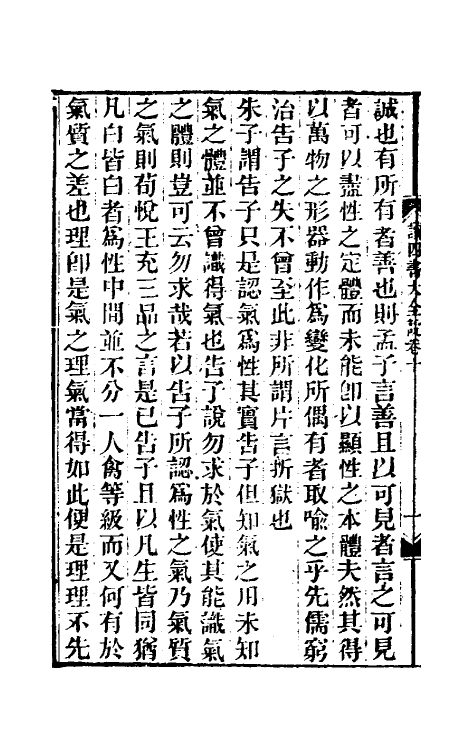 誠也有所有者善也則孟子言善且以可見者言之可見
者可以盡性之定體而未能卽以顯性之本體夫然其得
以萬物之形器動作爲變化所偶有者取喻之乎先儒窮
治告子之失不曾至此非所謂片言折獄也
朱子謂告子只是認氣爲性其實告子但知氣之用未知
氣之體並不曾識得氣也告子說勿求於氣使其能識氣
之體則豈可云勿求哉若以告子所認爲性之氣乃氣質
之氣則荀悅王充三品之言是已告子且以凡生皆同猶
凡白皆白者爲性中閒並不分一人禽等級而又何有於
氣質之差也理卽是氣之理氣當得如此便是理理不先
讀四書大全說卷十